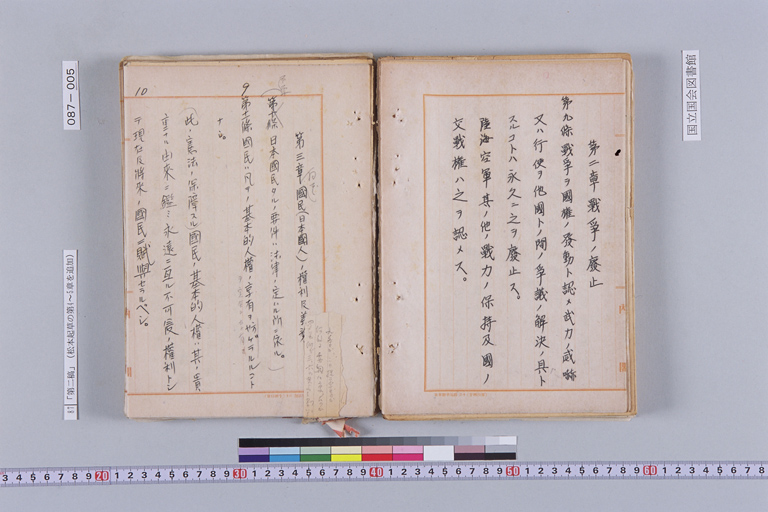 国立国会図書館
第二章 戰爭ノ廢止
第九條 戰爭ヲ國權ノ發動ト認メ武力ノ威嚇
又ハ行使ヲ他國トノ間ノ爭議ノ解決ノ具ト
スルコトハ永久ニ之ヲ廢止ス。
陸海空軍其ノ他ノ戰力ノ保持及國ノ
交戰權ハ之ヲ認メス。
第三章 國民(日本國人)ノ權利及義務
第十條 日本國民タルノ要件ハ法律ノ定ムル所ニ依ル。
9
第十一條 國民ハ凡テノ基本的人權ノ享有ヲ妨ケラルルコト
ナシ。
此ノ憲法ノ保障スル國民ノ基本的人權ハ其ノ貴
重ナル由來ニ鑑ミ永遠ニ亘ル不可侵ノ權利トシ
10
テ現在及將來ノ國民ニ賦與セラルベシ。
087-005
「第二稿」(松本起草の第4~5章を追加)
3 4 5 6 7 8 9 20 1 2 3 4 5 6 7 8 9 30 1 2 3 4 5 6 7 8 9 40 1 2 3 4 5 6 7 8 9 50 1 2 3 4 5 6 7 8 9 60 1 2 3 4 5 6 7 8